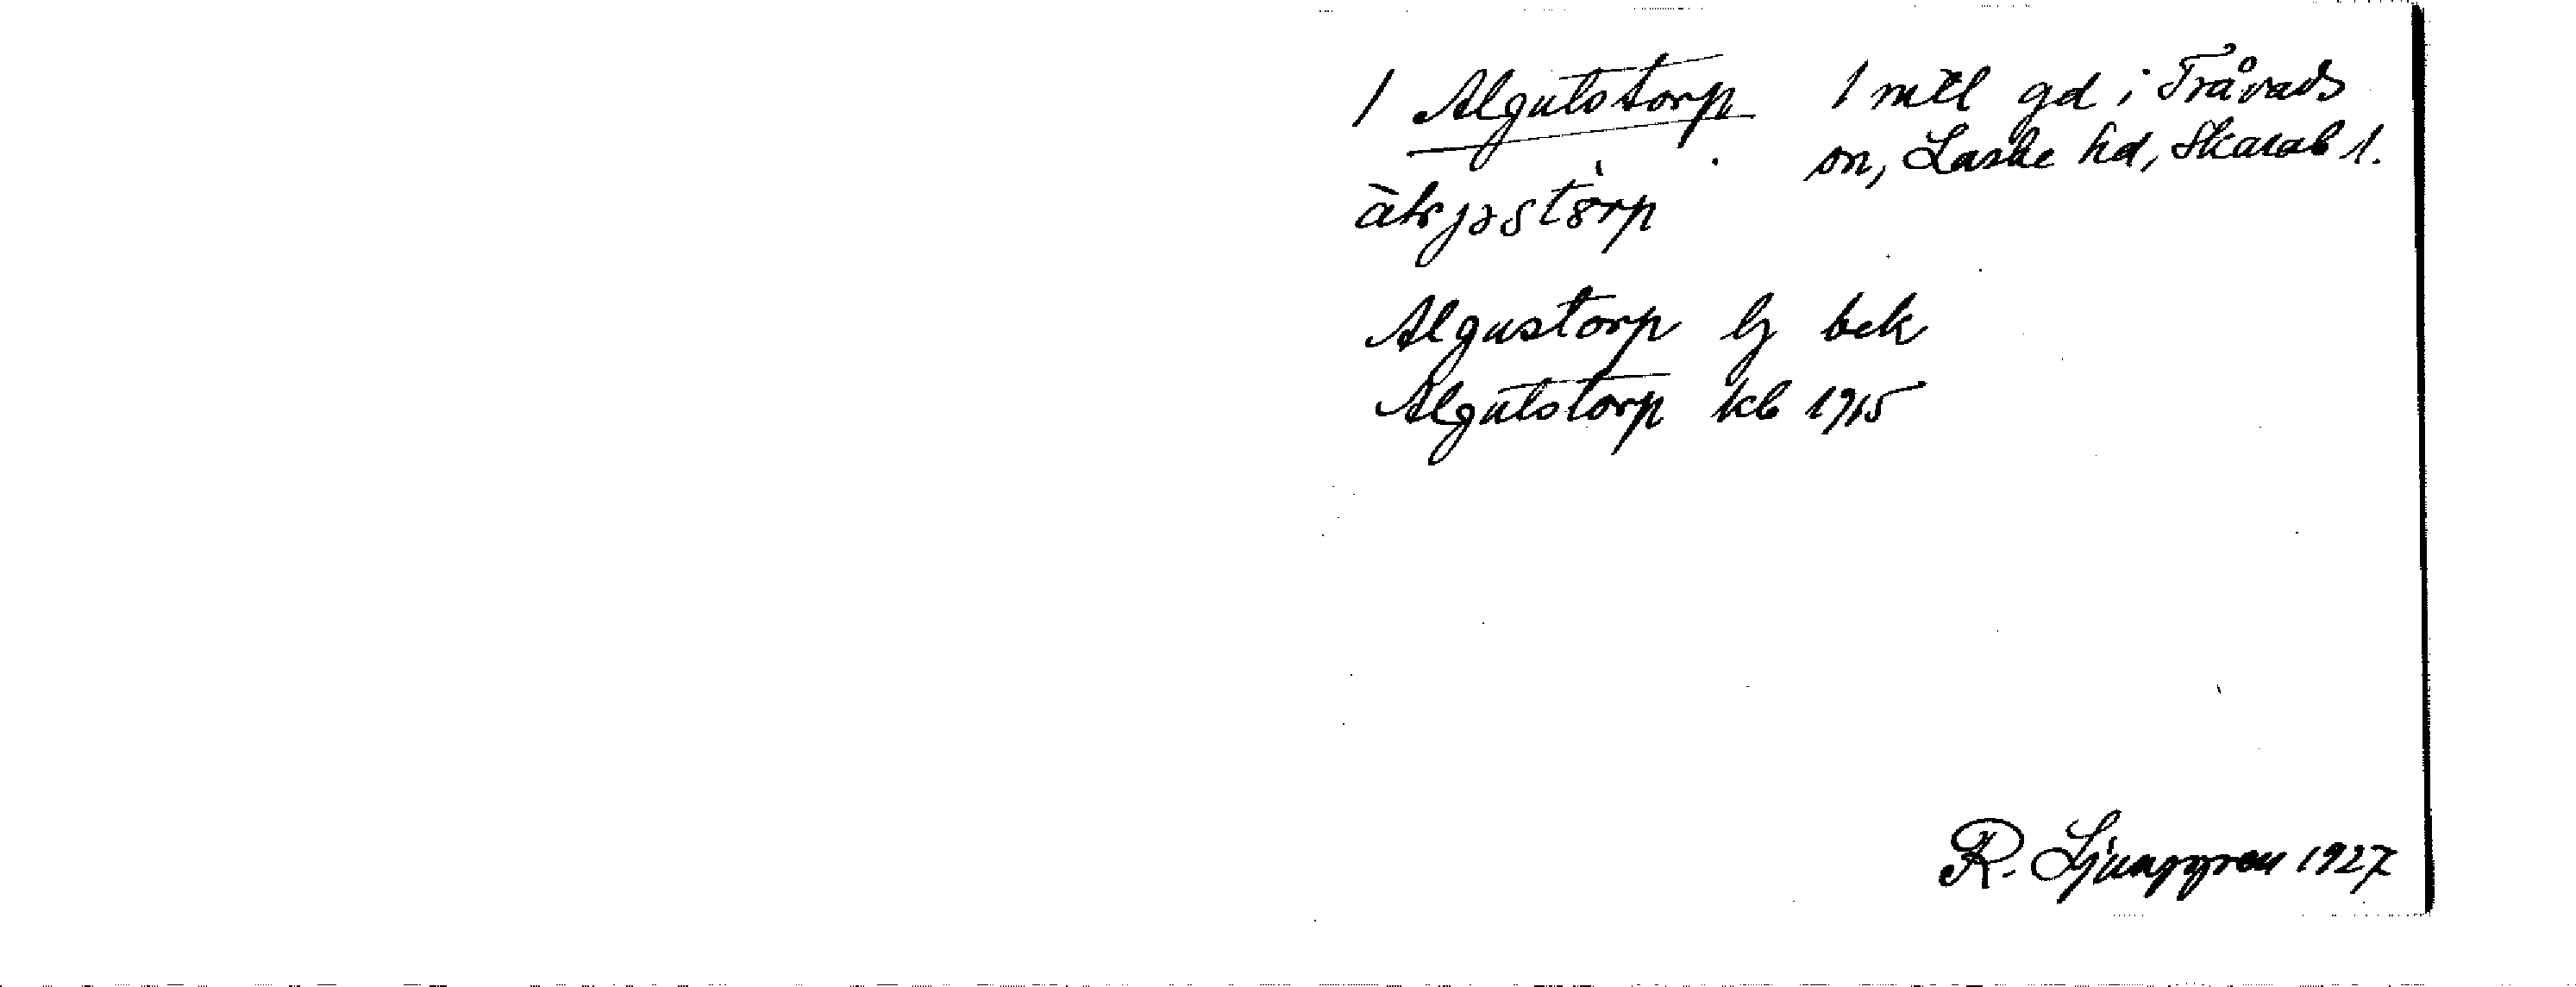 1 Algutstorp 1 mtl gd i Tråvads
sn, Laske hd, Skarab l.
Algustorp lj bek
Algutstorp kb 1915
R. Ljunggren 1927